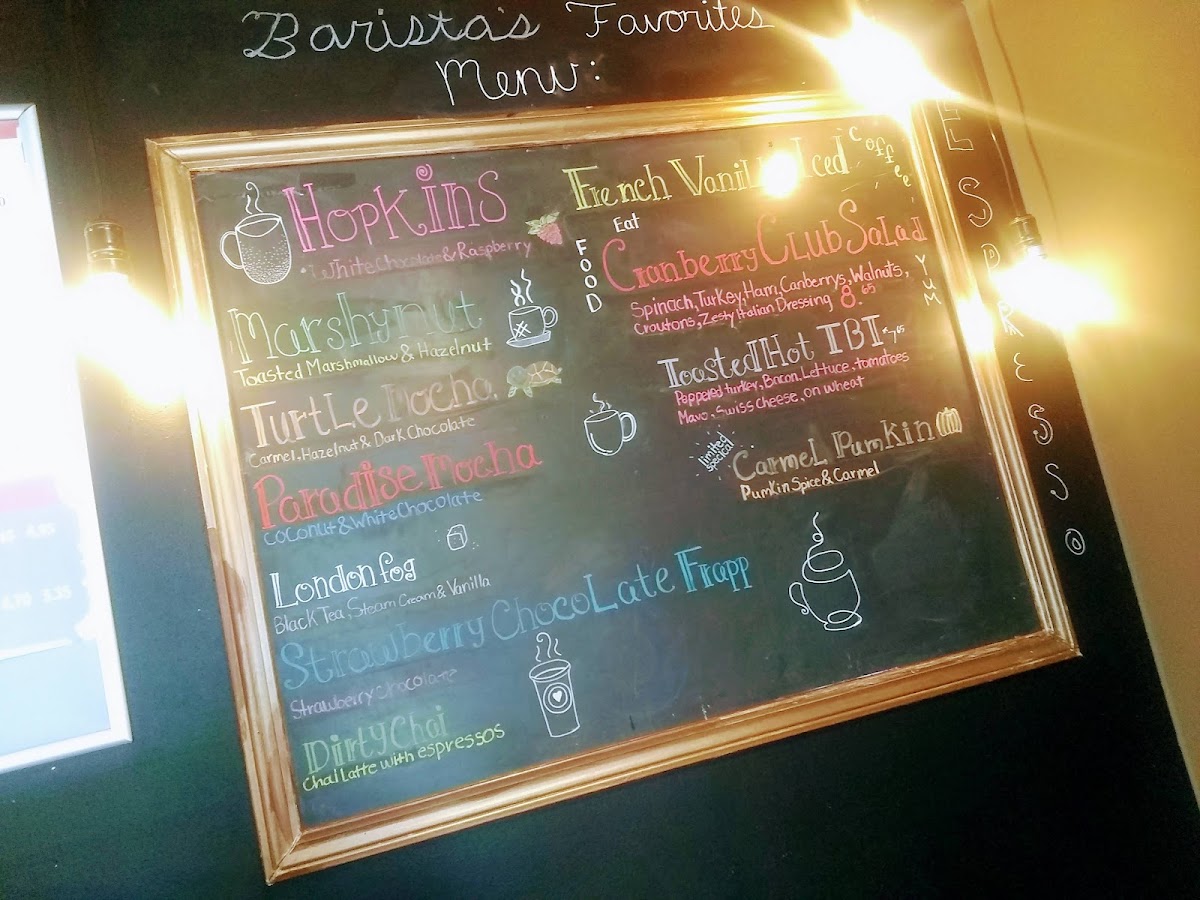 Barista's Favorites
Menu:
HOPKINS
White Chocolate & Raspberry
Marshynut
Toasted Marshmallow & Hazelnut
Turtle Mocha
Carmel, Hazelnut & Dark Chocolate
Paradise Mocha
Coconut & White Chocolate
London fog
Black Tea, Steam Cream & Vanilla
Strawberry Chocolate Frapp
Strawberry Chocolate
Dirty Chai
Chai Latte with espressos
French Vanilla Iced Coffee
Eat
FOOD
Cranberry Club Salad
Spinach, Turkey, Ham, Canberrys, Walnuts,
Croutons, Zesty Italian Dressing 8.65
YUM
Toasted Hot TBI
Peppered turkey, Bacon, Lettuce, tomatoes
Mayo, Swiss cheese, on wheat
limited
special
Carmel Pumkin
Pumkin Spice & Carmel
ESPRESSO
4.85
4.70 5.35